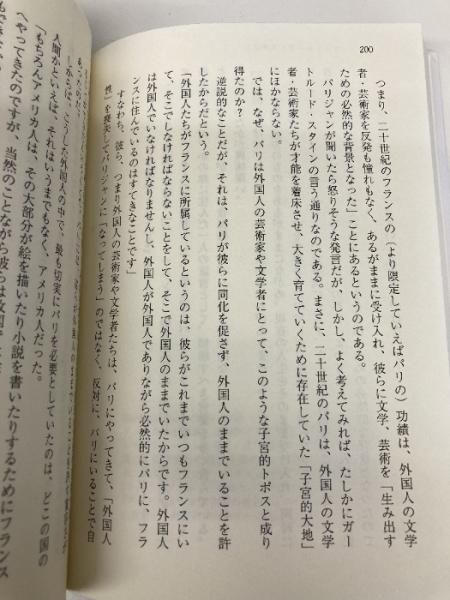 200
つまり、二十世紀のフランスの（より限定していえばパリの）功績は、外国人の文学
者・芸術家を反発も憧れもなく、あるがままに受け入れ、彼らに文学、芸術を「生み出す
ための必然的な背景となった」ことにあるというのである。
パリジャンが聞いたら怒りそうな発言だが、しかし、よく考えてみれば、たしかにガー
トルード・スタインの言う通りなのである。まさに、二十世紀のパリは、外国人の文学
者・芸術家たちが才能を着床させ、大きく育てていくために存在していた「子宮的大地」
にほかならない。
では、なぜ、パリは外国人の芸術家や文学者にとって、このような子宮的トポスと成り
得たのか？
逆説的なことだが、それは、パリが彼らに同化を促さず、外国人のままでいることを許
したからだという。
「外国人たちがフランスに所属しているというのは、彼らがこれまでいつもフランスにい
て、そこでしなければならないことをして、そこで外国人のままでいたからです。外国人
は外国人でいなければなりませんし、外国人が外国人でありながら必然的にパリに、フラ
ンスに住んでいるのはすてきなことです」
すなわち、彼ら、つまり外国人の芸術家や文学者たちは、パリにやってきて、「外国人
性」を喪失してパリジャンに「なってしまう」のではなく、反対に、パリにいることで自
しからば、こうした外国人の中で、最も切実にパリを必要としていたのは、どこの国の
人間かといえば、それはいうまでもなく、アメリカ人だった。
「もちろんアメリカ人は、その大部分が絵を描いたり小説を書いたりするためにフランス
へやってきたのですが、当然のことながら彼らは故国で